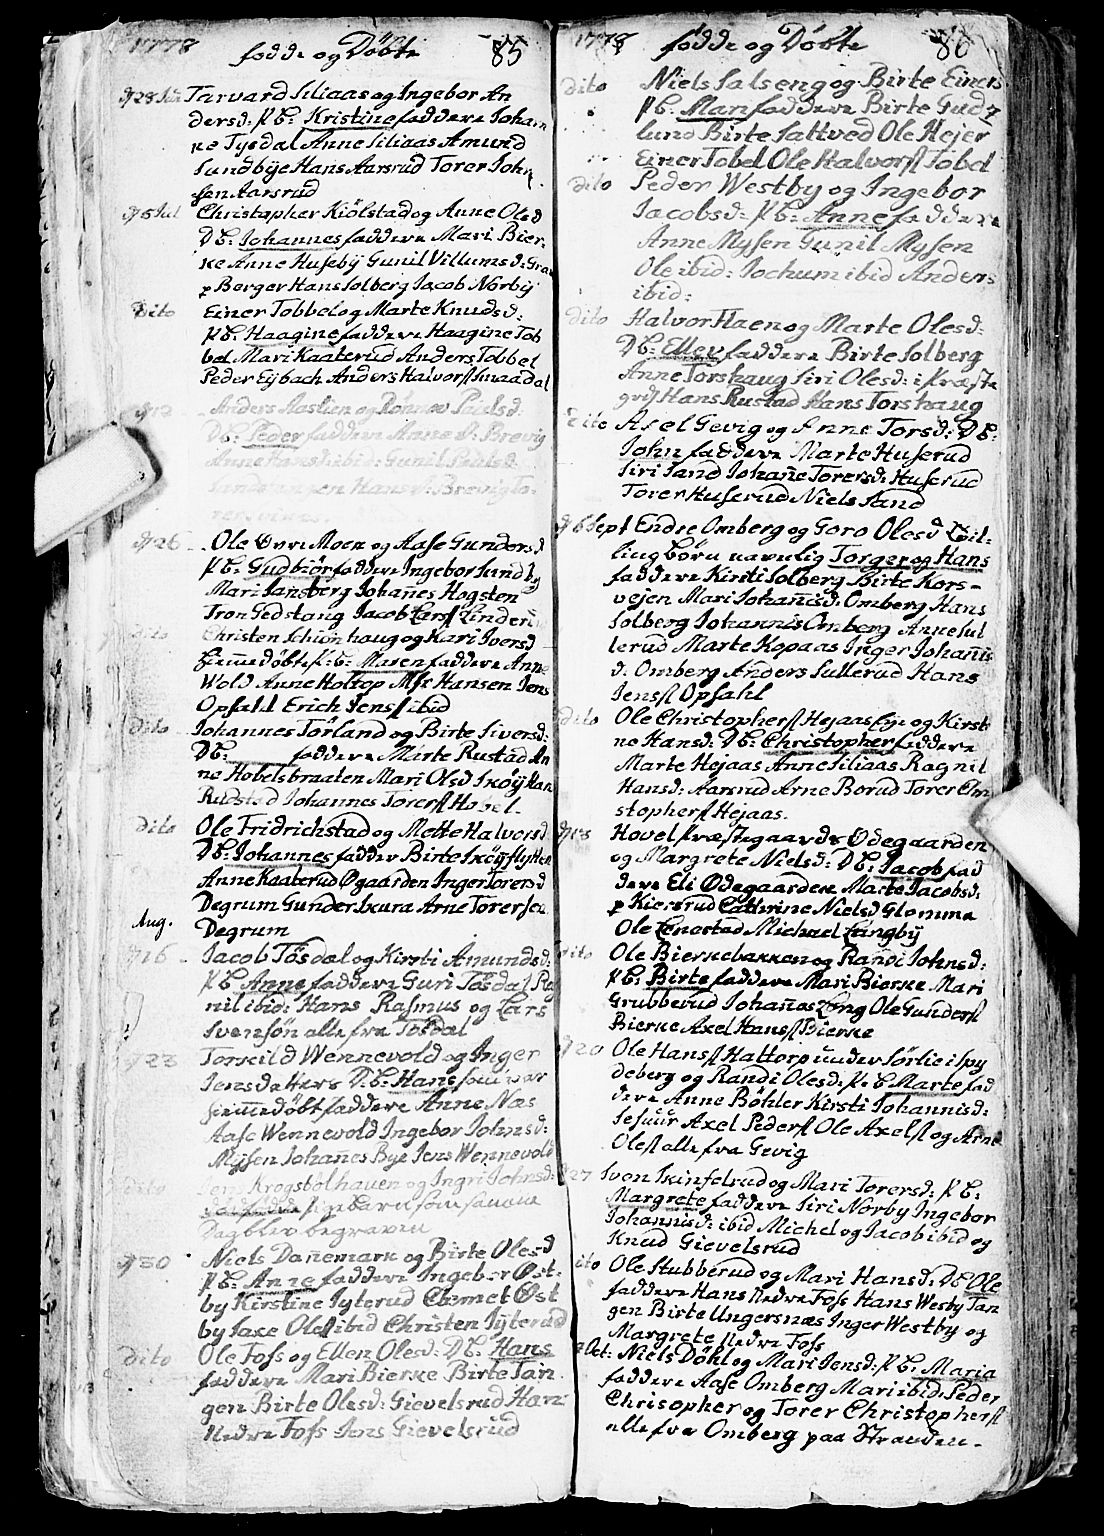 1778 fødde og Døbte 85
d 28 Jun Tarvard Siliaas og Ingebor An
dersd: P B: Kristine faddere Johan
ne Tysdal Anne Siliaas Amund
Sundbije Hans Aarsrud Torer Joh
sen Aarsrud
d 5 Jul Christopher Kiölstad og Anne Olsd
D B: Johannes faddere Mari Bier
ke Anne Husebÿ Gunil Villumsd: Gra
p Borger Hans Solberg Jacob Norbÿ
dito Einer Tobbel og Marte Knudsd:
P B: Haagine faddere Haagine Tob
bel Mari Kaaterud Anders Tobbel
Peder Eÿbach Anders Halvors Smaadal
d 12 Anders Aastien og Rönnov Paulsd:
D B: Peder faddere Anne d: Brevig
Anne Hansd: ibid: Gunil Paulsd
Sandstangen Hans d: Brevig To
d 26 Ole Øvre Moen og Aase Gundersd
P B: Gudbiör faddere Ingebor Sundby
Mari Sansberg Johanes Hogsten
Tron Gedstang Jacob Lars Linder
dito Christen Schönhaug og Kari Iversd
hiemedöbt P: B: Maren faddere Anne
Wold Anne Holtop Mr Hansen Jens
Opsahl Erich Jens ibid
dito Johannes Törland og Birte Siversd:
D B: faddere Marte Rustad An
ne Hobelsbraaten Mari Olsd Sköÿ Han
Rudstad Johannes Torers Hobel.
dito Ole Fridrichstad og Mette Halvorsd
D B: Johannes fadder Birte Sköÿflytten
Anne Kaaterud Øgaarden Inger Torersd
Degrum Gunder Skura Arne Torersen
Aug. Degrum
d 16 Jacob Tösdal og Kirsti Amundsd:
P B: Anne faddere Guri Tösdal Ra
nil ibid: Hans Rasmus og Lars
Svensön alle fra Tösdal
d 23 Torkild Wennevold og Inger
Jensdatters D: B: Hans som var
hiemedöbt faddere Anne Nas
Aase Wennevold Ingebor Johnsd:
Myssen Johanes Bye Jens Wennevold
dito Jens Krogsbolhauen og Ingri Johnsd:
Pigebarn som samme
Dag blev begraven
d 30 Niels Danemark og Birte Olesd
P B: Anne faddere Ingebor Øst
by Kirstine Syterud Clemet Øst
by Saxe Ols ibid Christen Syterud
dito Ole Foss og Ellen Olesd: D B: Hans
faddere Mari Bierke Birte Tan
gen Birte Olesd: Gievelsrud Hans
Nedre Foss Jens Gievelsrud
1778 fødde og Döbte 86
dito Niels Salseng og Birte Einers
P B: Mari faddere Birte Gud
lund Birte Sattved Ole Hejer
Einer Tobel Ole Halvors Tobel
dito Peder Westby og Ingebor
Jacobsd: P B: Anne faddere
Anne Myssen Gunil Myssen
Ole ibid: Jochum ibid Anders
ibid:
dito Halvor Flaen og Marte Olesd:
D B: Ellev faddere Birte Solberg
Anne Torshaug Siri Olesd: i Præste
grd Hans Rustad Hans Torshaug
dito Axel Gevig og Anne Torsd: D B:
John faddere Marte Huserud
Siri Sand Johane Torersd: Huserud
Torer Huserud Niels Sand
d 6 Sept Endre Omberg og Goro Olesd Tvil
ling börn navnlig Torger og Hans
faddere Kirsti Solberg Birte Kors-
vejen Mari Johanisd: Omberg Hans
Solberg Johannis Omberg Anne Sul
lerud Marte Kopaas Inger Johanis
d: Omberg Anders Sullerud Hans
Jens Opsahl
dito Ole Christophers Hejaas Eye og Kirst
ne Hansd: D B: Christopher faddere
Marte Hejaas Anne Siliaas Ragnil
Hansd: Aarsrud Arne Borud Torer Chri
stophers Hejaas.
d 13 Hovel Præstegaards Ødegaarden
og Margrete Nielsd: D B: Jacob fad
dere Eli Ødegaarden Marte Jacobsd:
p Kiersrud Cathrine Nielsd Glomma
Ole Lenastad Michael Langbÿ
dito Ole Bierkebakken og Randi Johnsd:
P B: Birte faddere Mari Bierke Mari
Grubberud Johanas Leng Ole Gunders
Bierke Axel Hans Bierke
d 20 Ole Hans Hattorp under Sørlie i Spy
deberg og Randi Olesd: P: B: Marte fad
dere Anne Böhler Kirsti Johannisd:
Sesuur Axel Peders Ole Axels og Arne
Oles alle fra Gevig
d 27 Sven Skinfelrud og Mari Torersd: P: B:
Margrete faddere Siri Norby Ingebor
Johannisd: ibid Michel og Jacob ibid og
Knud Gievelsrud
dito Ole Stubberud og Mari Hansd: D B: Ole
faddere Hans Nedre Foss Hans Wesby Tan
gen Birte Ungersnæs Inger Westby og
Margrete Nedre Foss
Oct: Niels Döhl og Mari Jensd: P B: Maria
faddere Aase Omberg Mari ibid: Peder
Chrisopher og Torer Christophers
alle fra Omberg paa Stranden.